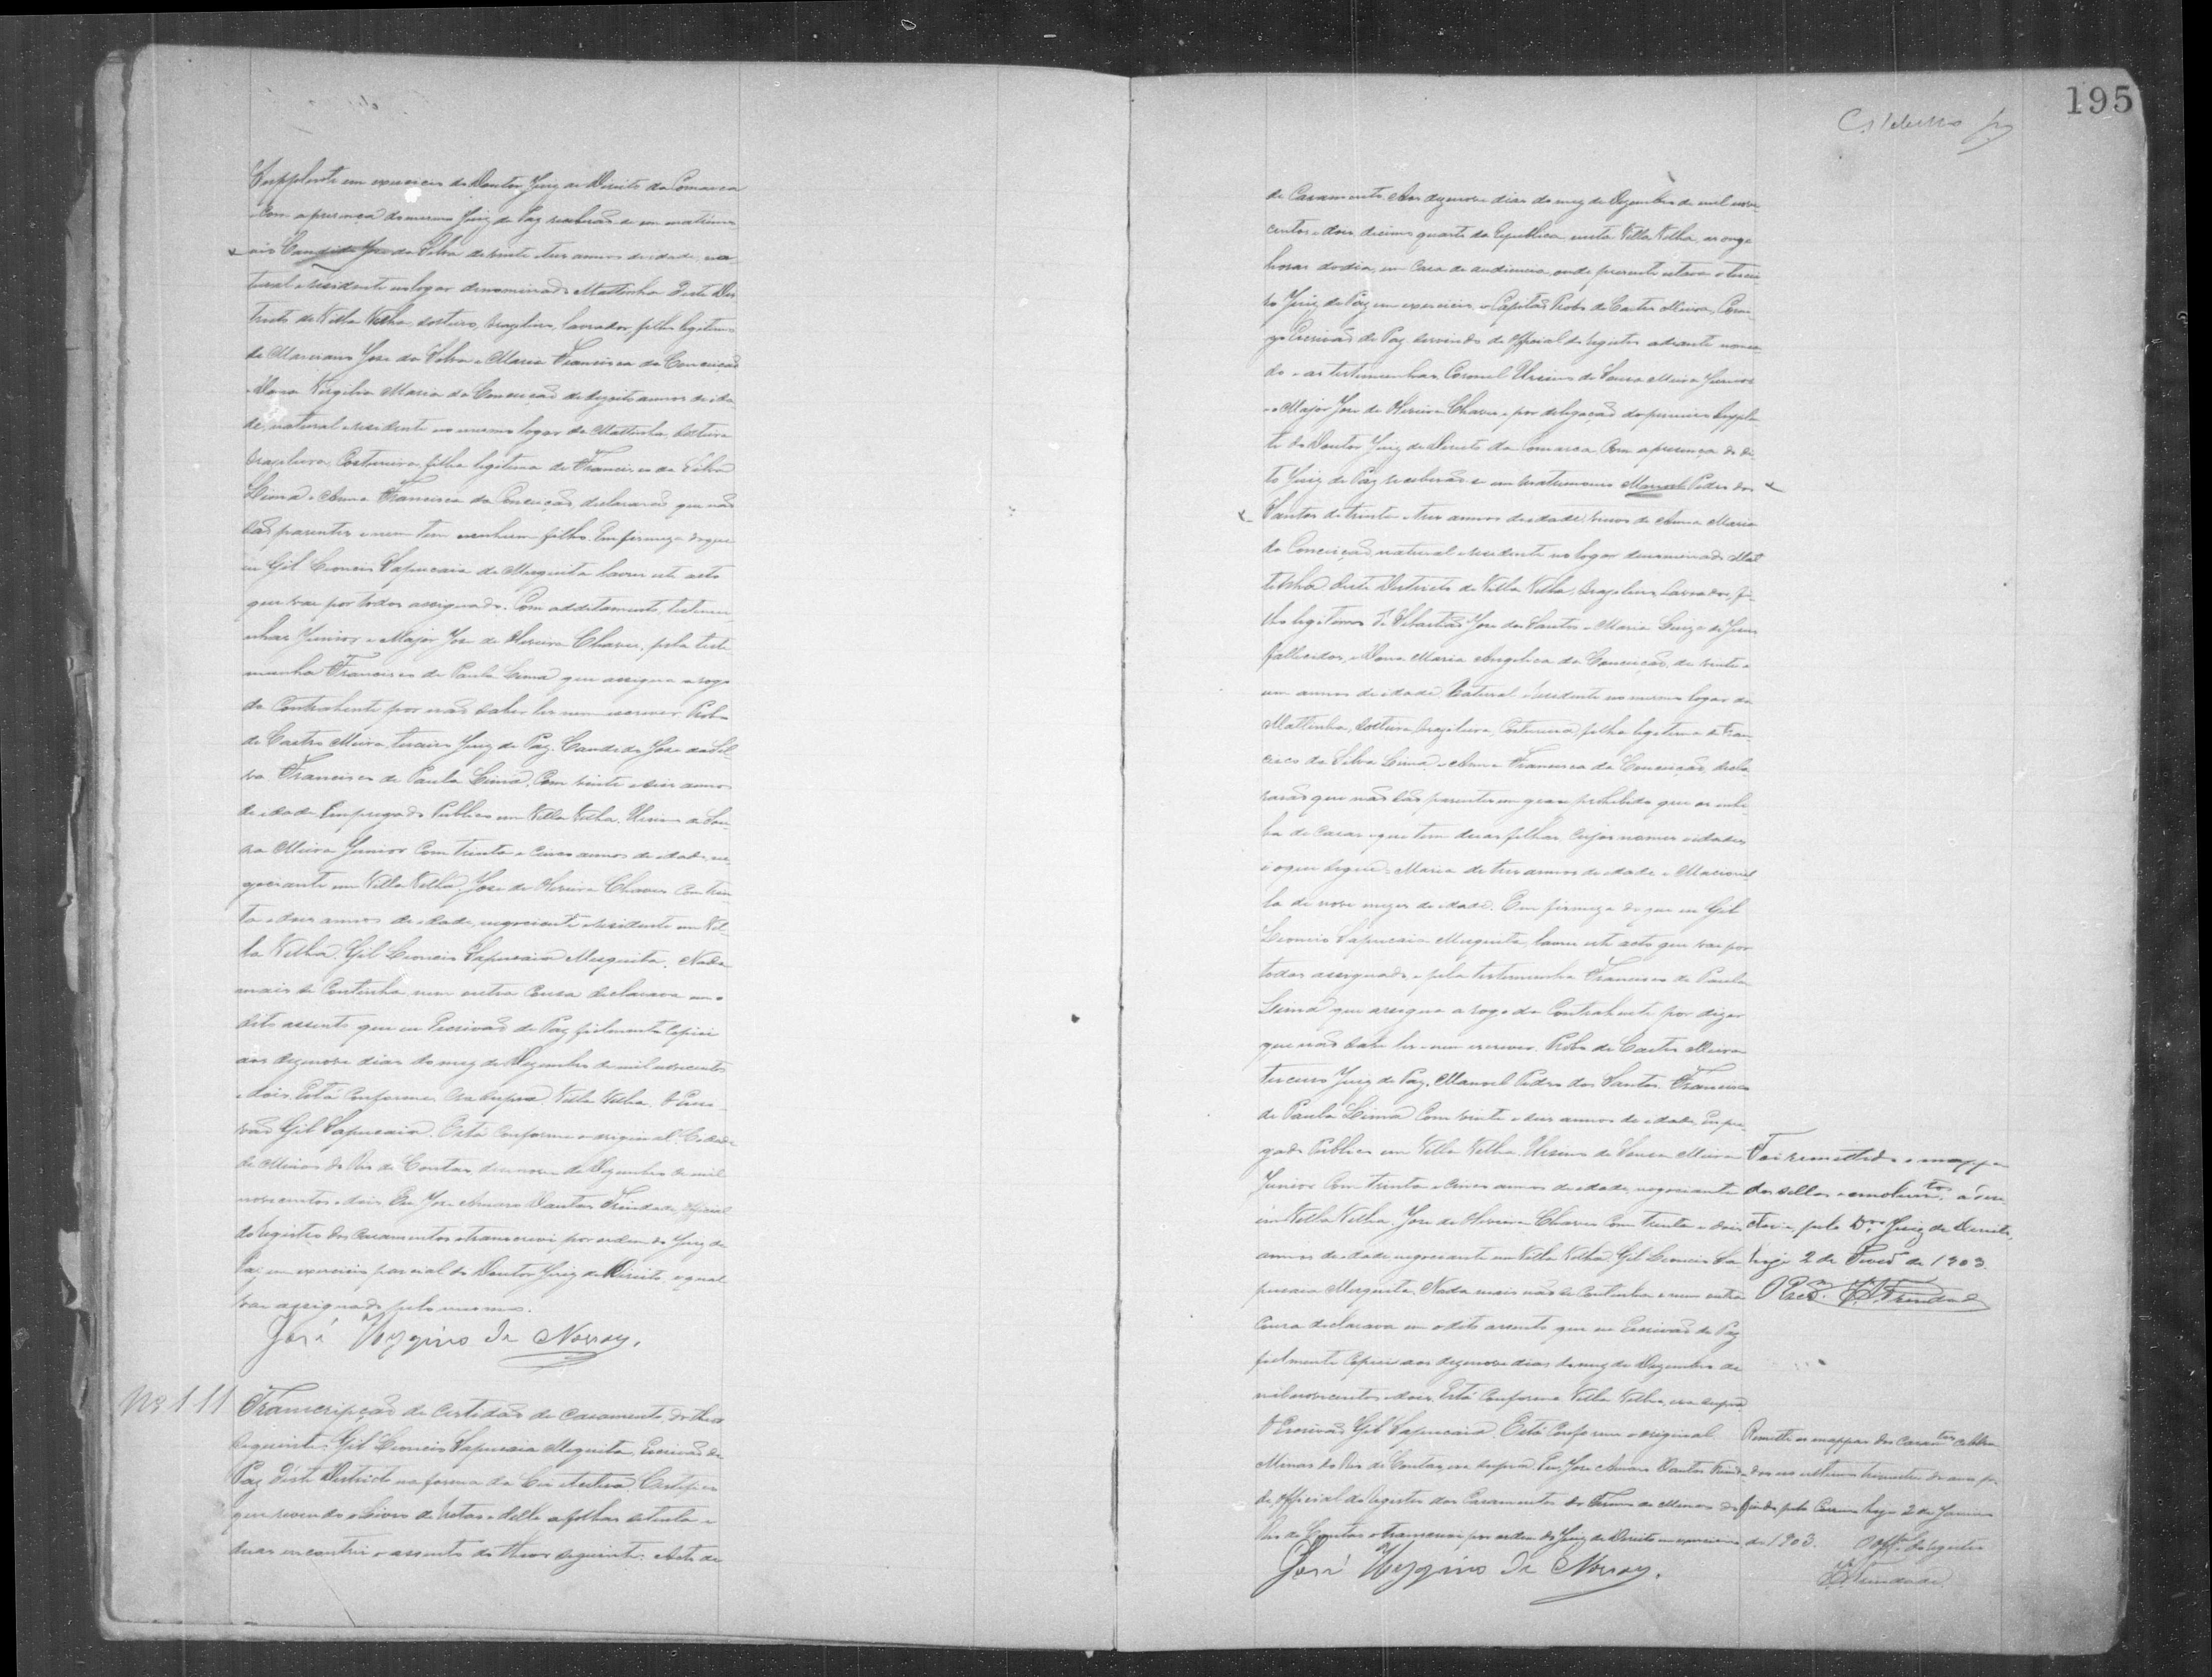 Supplente em exercicio do Doutor Juiz de Direito da Comarca
com a presença do mesmo Juiz de Paz receberão-se em matrimo-
nio Candido Jose da Silva de vinte e tres annos de idade, na-
tural e residente no logar denominado Mattinha deste Dis-
tricto de Villa Velha, solteiro, brazileiro, lavrador, filho legitimo
de Marciano Jose da Silva e Maria Francisca da Conceição
e Dona Virgilia Maria da Conceição de dezoito annos de ida-
de, natural e residente no mesmo logar da Mattinha, solteira
brazileira, Costureira, filha legitima de Francisco da Silva
Lima e Anna Francisca da Conceição, declararão que não
são parentes e nem tem nenhum filho. Em firmeza do que
eu Gil Leoncio Sapucaia de Mesquita lavrei este acto
que vae por todos assignado. Com additamento, testemu-
nhas Junior e Major Jose de Oliveira Chaves, pela teste-
munha Francisco de Paula Lima que assigna a rogo
da Contrahente por não saber ler nem escrever. Probo
de Castro Meira, terceiro Juiz de Paz. Candido Jose da Sil-
va. Francisco de Paula Lima, Com vinte e seis annos
de idade, Empregado Publico em Villa Velha. Ursino de Sou-
sa Meira Junior Com trinta e Cinco annos de idade, ne-
gociante em Villa Velha. Jose de Oliveira Chaves Com trin-
ta e dois annos de idade, negociante e residente em Vil-
la Velha. Gil Leoncio Sapucaia Mesquita. Nada
mais se Continha, nem outra Cousa declarava em o
dito assento que eu Escrivão de Paz fielmente Copiei
aos dezenove dias do mez de Dezembro de mil novecentos
e dois. Está Conforme. Era supra. Villa Velha. O Escri-
vão Gil Sapucaia. Está Conforme o original. Cidade
de Minas do Rio de Contas, dezenove de Dezembro de mil
novecentos e dois. Eu Jose Amaro Dantas Trindade, Official
do registro dos Casamentos o transcrevi por ordem do Juiz de
Paz em exercicio parcial do Doutor Juiz de Direito, o qual
vae assignado pelo mesmo.
José Hygino de Novaes.
Nº 111 Transcripção de Certidão de Casamento, do theor
seguinte: Gil Leoncio Sapucaia Mesquita, Escrivão de
Paz deste Districto na forma da Lei etc. Certifico
que revendo o Livro de Notas e delle a folhas setenta e
duas encontrei o assento do theor seguinte: Acto de
195
de Casamento. Aos dezenove dias do mez de Dezembro de mil nove-
centos e dois, decimo quarto da Republica, nesta Villa Velha, as onze
horas do dia, em Casa de audiencia, onde presente estava o tercei-
ro Juiz de Paz em exercicio, o Capitão Probo de Castro Meira, Comi-
go Escrivão de Paz servindo de Official do registro adiante nomea-
do e as testemunhas Coronel Ursino de Sousa Meira Junior
e o Major Jose de Oliveira Chaves, e por delegação do primeiro Supplen-
te do Doutor Juiz de Direito da Comarca, Com a presença do di-
to Juiz de Paz receberão-se em matrimonio Manoel Pedro dos
Santos de trinta e tres annos de idade, viuvo de Anna Maria
da Conceição, natural e residente no logar denominado Mat-
tinha deste Districto de Villa Velha, brazileiro, Lavrador, fi-
lho legitimo de Sebastião Jose dos Santos e Maria Luiza de Jesus
fallecidos, e Dona Maria Angelica da Conceição, de vinte e
um annos de idade, Natural e residente no mesmo logar da
Mattinha, Solteira, brazileira, Costureira, filha legitima de Fran-
cisco da Silva Lima e Anna Francisca da Conceição, decla-
rarão que não são parentes em grao prohibido que os inhi-
ba de Casar e que tem duas filhas, Cujos nomes e idades
é o que segue: Maria de tres annos de idade e
de nove mezes de idade. Em firmeza do que eu Gil
Leoncio Sapucaia Mesquita, lavrei este acto que vae por
todos assignado e pela testemunha Francisco de Paula
Lima que assigna a rogo da Contrahente por dizer
que não sabe ler e nem escrever. Probo de Castro Meira
terceiro Juiz de Paz. Manoel Pedro dos Santos. Francisco
de Paula Lima Com vinte e seis annos de idade, Empre-
gado Publico em Villa Velha. Ursino de Sousa Meira
Junior Com trinta e Cinco annos de idade, negociante
em Villa Velha. Jose de Oliveira Chaves Com trinta e dois
annos de idade, negociante em Villa Velha. Gil Leoncio Sa-
pucaia Mesquita. Nada mais não se Continha e nem outra
Cousa declarava em o dito assento que eu Escrivão de Paz
fielmente Copiei aos dezenove dias do mez de Dezembro de
mil novecentos e dois. Está Conforme. Villa Velha, era supra
O Escrivão Gil Sapucaia. Está Conforme o original
Minas do Rio de Contas, era supra. Eu, Jose Amaro Dantas Trinda-
de, Official do registro dos Casamentos do Termo de Minas do
Rio de Contas o transcrevi por ordem do Juiz de Direito em exercicio
José Hygino de Novaes.
Foi remettido o mappa
dos sellos e emolumtos a
pelo Dor Juiz de Direito.
hoje 2 de de 1903.
Trindade
Remetti os mappas dos Casamtos celebra-
dos no ultimo trimestre do anno pro.
findo pelo Correio hoje 2 de Janeiro
de 1903. O Offal do registro
Trindade